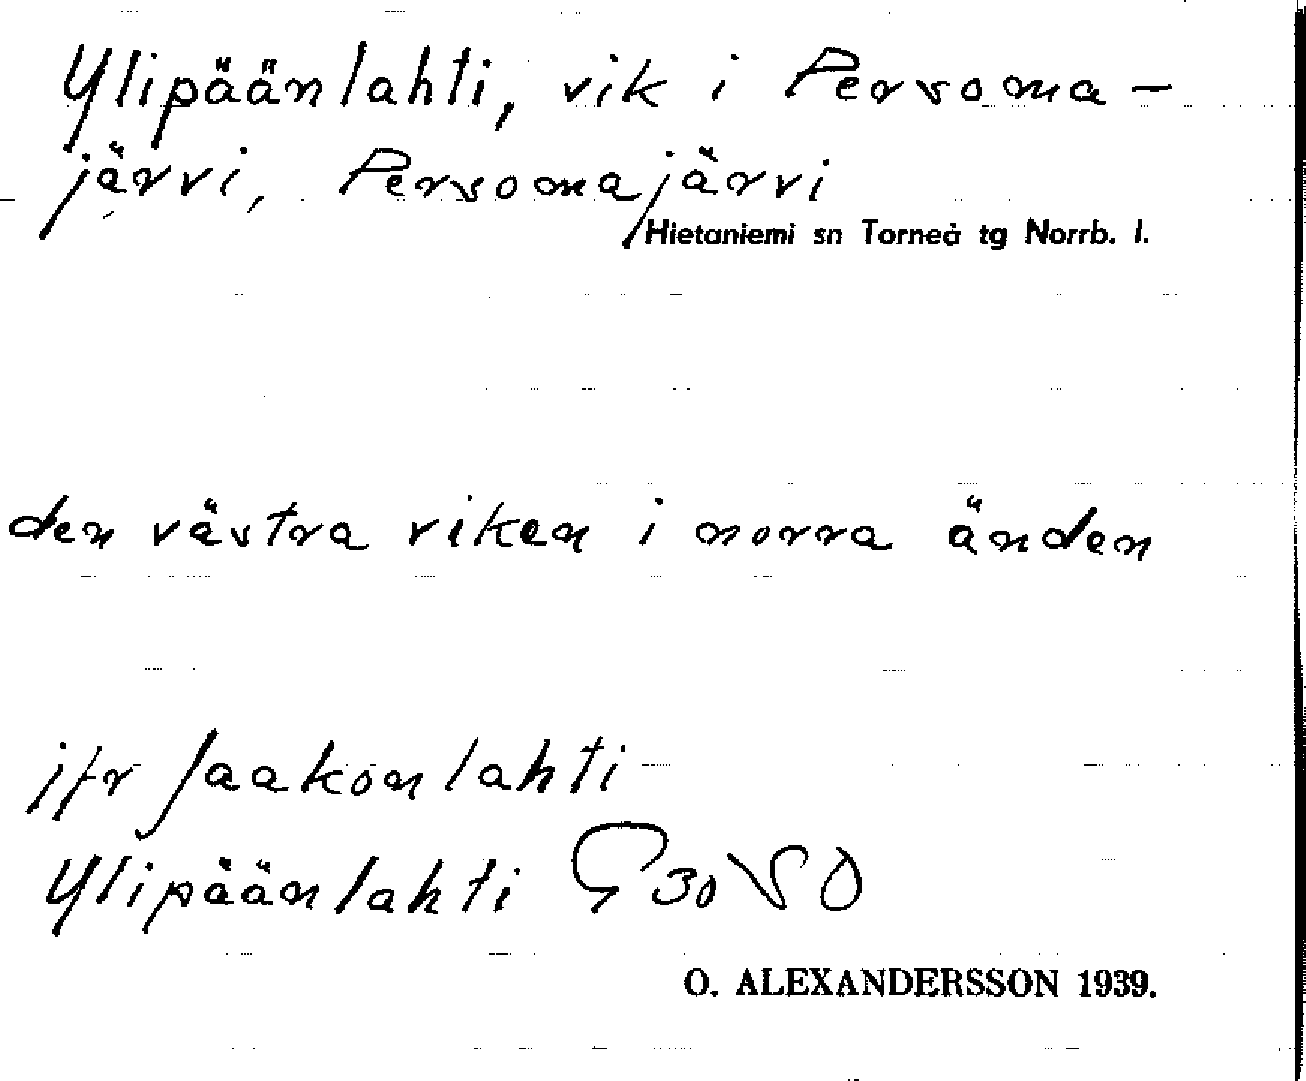 Ylipäänlahti, vik i Persoma-
järvi, Persomajärvi
Hietaniemi sn Torneå tg Norrb. l.
den västra viken i norra änden
jfr Jaakonlahti
Ylipäänlahti G 30 VO
O. ALEXANDERSSON 1939.